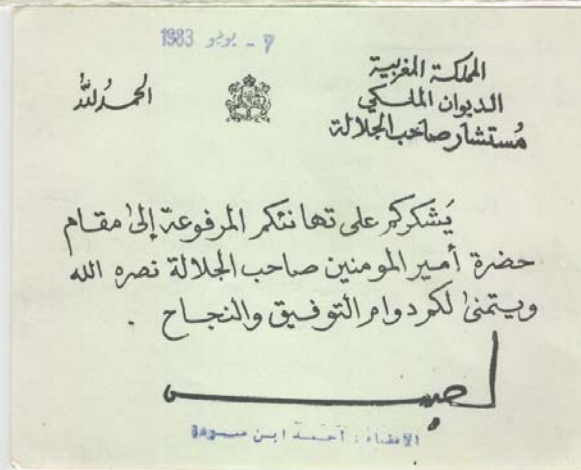 7 - يونيو 1983
المملكة المغربية
الديوان الملكي
مستشار صاحب الجلالة
الحمد لله
يشكركم على تهانئكم المرفوعة إلى مقام
حضرة أمير المومنين صاحب الجلالة نصره الله
ويتمنى لكم دوام التوفيق والنجاح .
الامضاء : أحمد ابن سودة